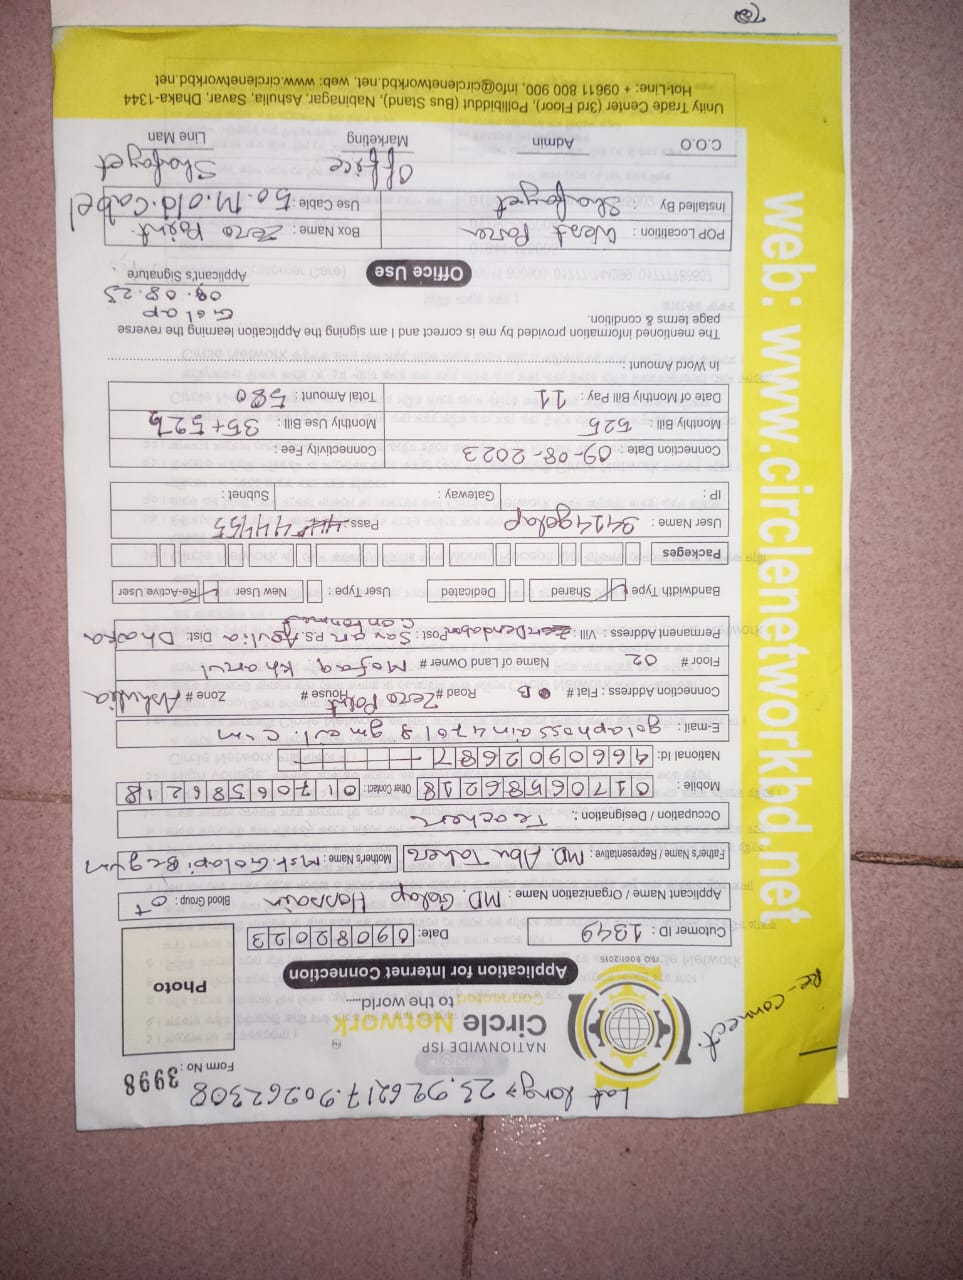 Re-connect.
Lat Long >
Form No : 3998
NATIONWIDE ISP
Circle Network
Connected
to the world......
ISO 9001:2015
Application for Internet Connection
Photo
Cutomer ID : 1349 Date: 09082023
Applicant Name / Organization Name : MD. Golap Hossain Blood Group : O+
Father's Name / Representative : MD. Abu Taher Mother's Name : Mst. Golapi Begum
Occupation / Designation : Teacher
Mobile : 01706586218 Other Contact: 01706586218
National Id: 4660902687
E-mail : golaphossain4701@gmail.com
Connection Address : Flat # B Road # Zero Point House # Zone # Ashulia
Floor # 02 Name of Land Owner #
Permanent Address : Vill : Dendabor Post : Savar Cantonment P.S. Ashulia Dist. Dhaka
Bandwidth Type Shared Dedicated User Type : New User Re-Active User
Packeges
User Name : 3414golap Pass: 44455
IP : Gateway : Subnet :
Connection Date : 09-08-2023 Connectivity Fee :
Monthly Bill : 525 Monthly Use Bill : 35+525
Date of Monthly Bill Pay : 11 Total Amount : 580
In Word Amount :
The mentioned information provided by me is correct and I am signing the Application learning the reverse
page terms & condition.
Golap
09.08.23
Applicant's Signature
Office Use
POP Locatition : West Box Name : Zero Point
Installed By : Shafayet Use Cable : 50.M.old.Cabel
Office Shafayet
C.O.O Admin Marketing Line Man
Unity Trade Center (3rd Floor), Pollibiddut (Bus Stand), Nabinagar, Ashulia, Savar, Dhaka-1344
Hot-Line: + 09611 800 900, info@circlenetworkbd.net, web: www.circlenetworkbd.net
web: www.circlenetworkbd.net